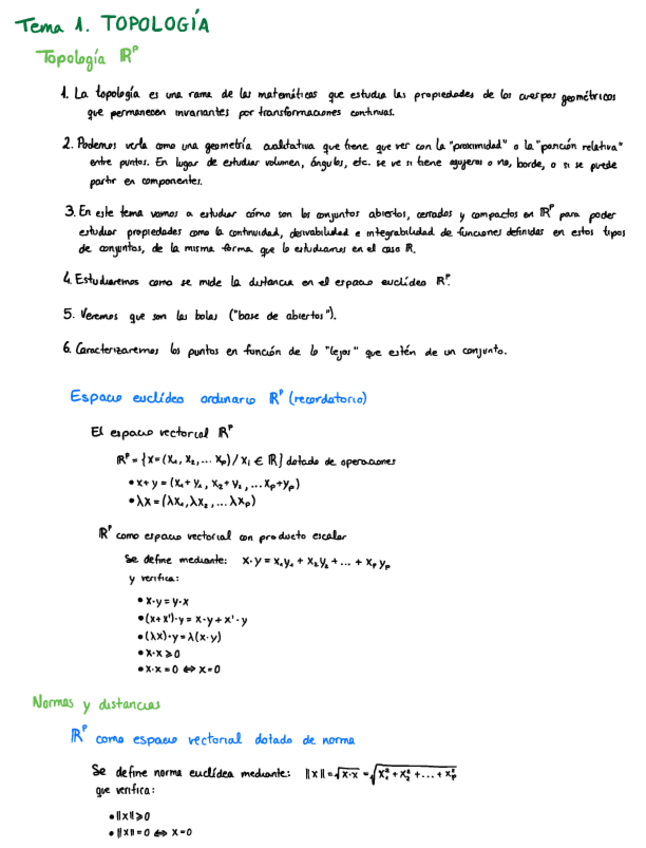 Tema 1. TOPOLOGÍA
Topología ℝᵖ
1. La topología es una rama de las matemáticas que estudia las propiedades de los cuerpos geométricos
que permanecen invariantes por transformaciones continuas.
2. Podemos verla como una geometría cualitativa que tiene que ver con la "proximidad" o la "posición relativa"
entre puntos. En lugar de estudiar volumen, ángulos, etc. se ve si tiene agujeros o no, borde, o si se puede
partir en componentes.
3. En este tema vamos a estudiar cómo son los conjuntos abiertos, cerrados y compactos en ℝᵖ para poder
estudiar propiedades como la continuidad, derivabilidad e integrabilidad de funciones definidas en estos tipos
de conjuntos, de la misma forma que lo estudiamos en el caso ℝ.
4. Estudiaremos como se mide la distancia en el espacio euclídeo ℝᵖ.
5. Veremos que son las bolas ("base de abiertos").
6. Caracterizaremos los puntos en función de lo "lejos" que estén de un conjunto.
Espacio euclídeo ordinario ℝᵖ (recordatorio)
El espacio vectorial ℝᵖ
ℝᵖ = {x=(x₁, x₂, ... xₚ) / xᵢ ∈ ℝ} dotado de operaciones
• x+y = (x₁+y₁, x₂+y₂, ... xₚ+yₚ)
• λx = (λx₁, λx₂, ... λxₚ)
ℝᵖ como espacio vectorial con producto escalar
Se define mediante: x·y = x₁y₁ + x₂y₂ + ... + xₚyₚ
y verifica:
• x·y = y·x
• (x+x')·y = x·y + x'·y
• (λx)·y = λ(x·y)
• x·x ⩾ 0
• x·x = 0 ⇔ x=0
Normas y distancias
ℝᵖ como espacio vectorial dotado de norma
Se define norma euclídea mediante: ‖x‖ = √x·x = √x₁² + x₂² + ... + xₚ²
que verifica:
• ‖x‖ ⩾ 0
• ‖x‖ = 0 ⇔ x=0